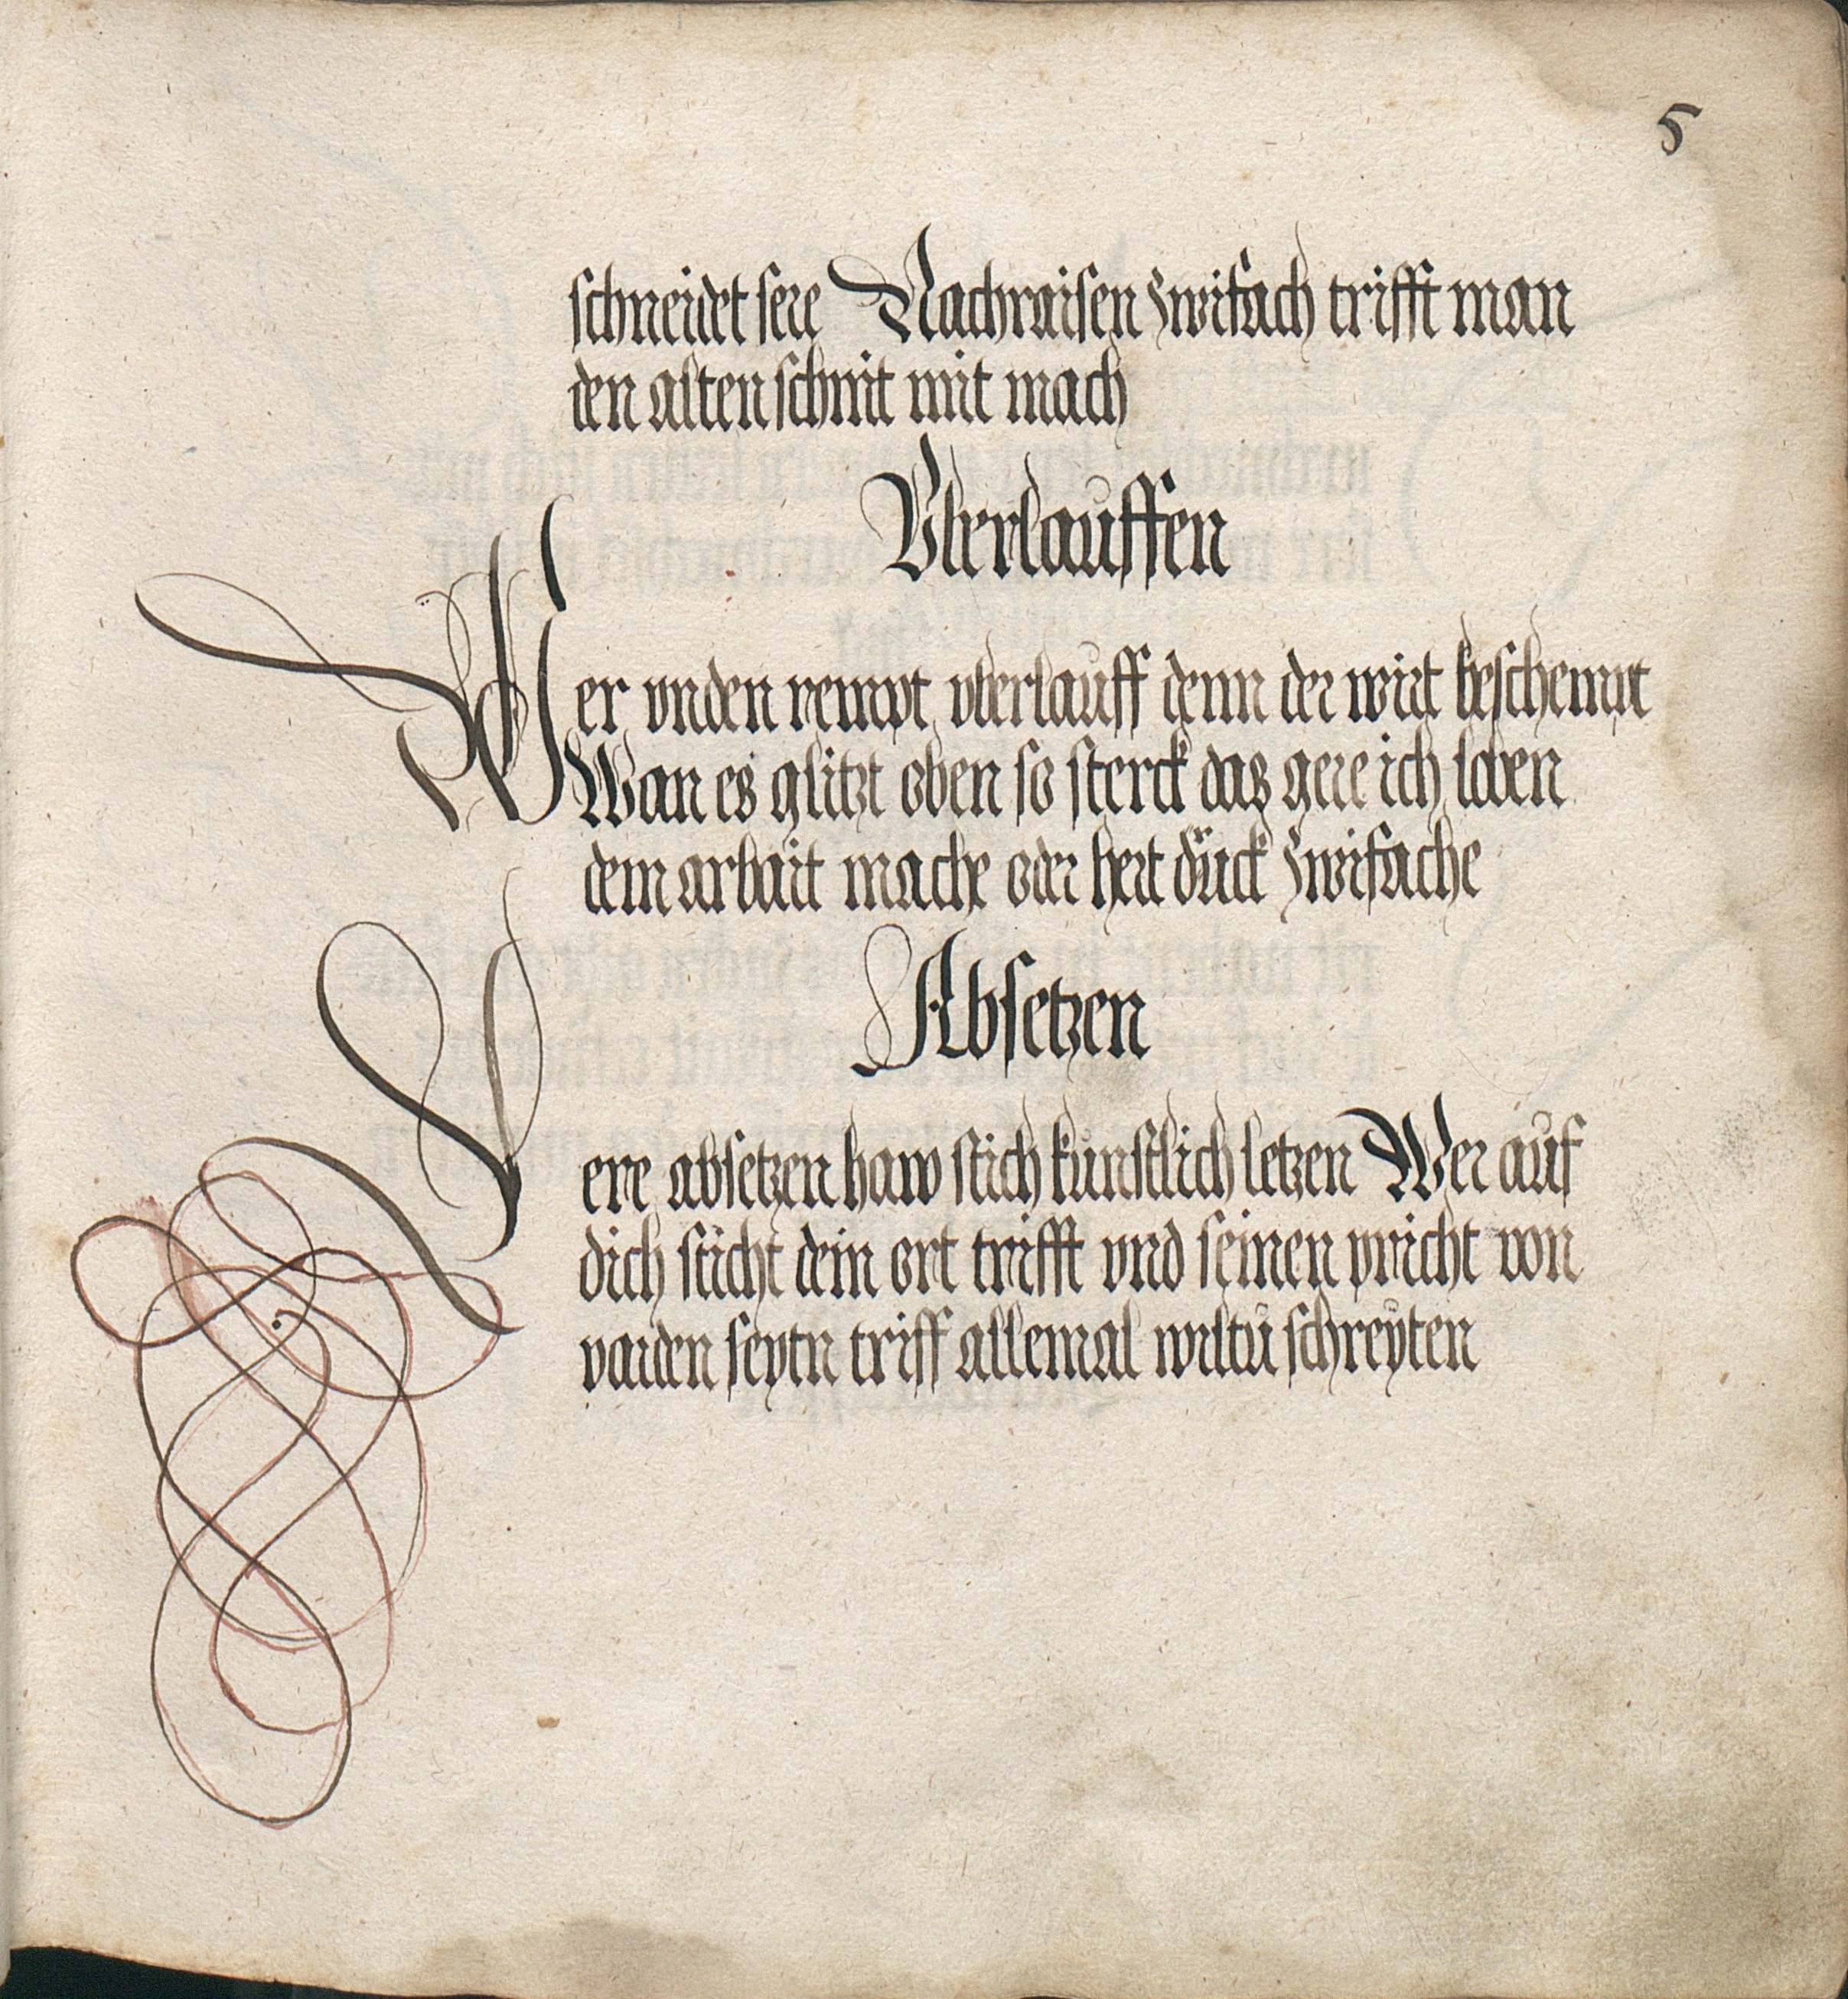 5
schneidet sere Nachraisen zwifach trifft man
den alten schnit mit mach
Vberlauffen
Wer vnden rempt vberlauff denn der wirt beschempt
Wan es glitzt oben so sterck das gere ich loben
dem arbait mache oder hert dŭck zwifache
Absetzen
Lere absetzen haw stich kunstlich letzen Wer auf
dich sticht dein ort trifft vnd seinen pricht von
paiden seytn triff allemal wiltu schreyten